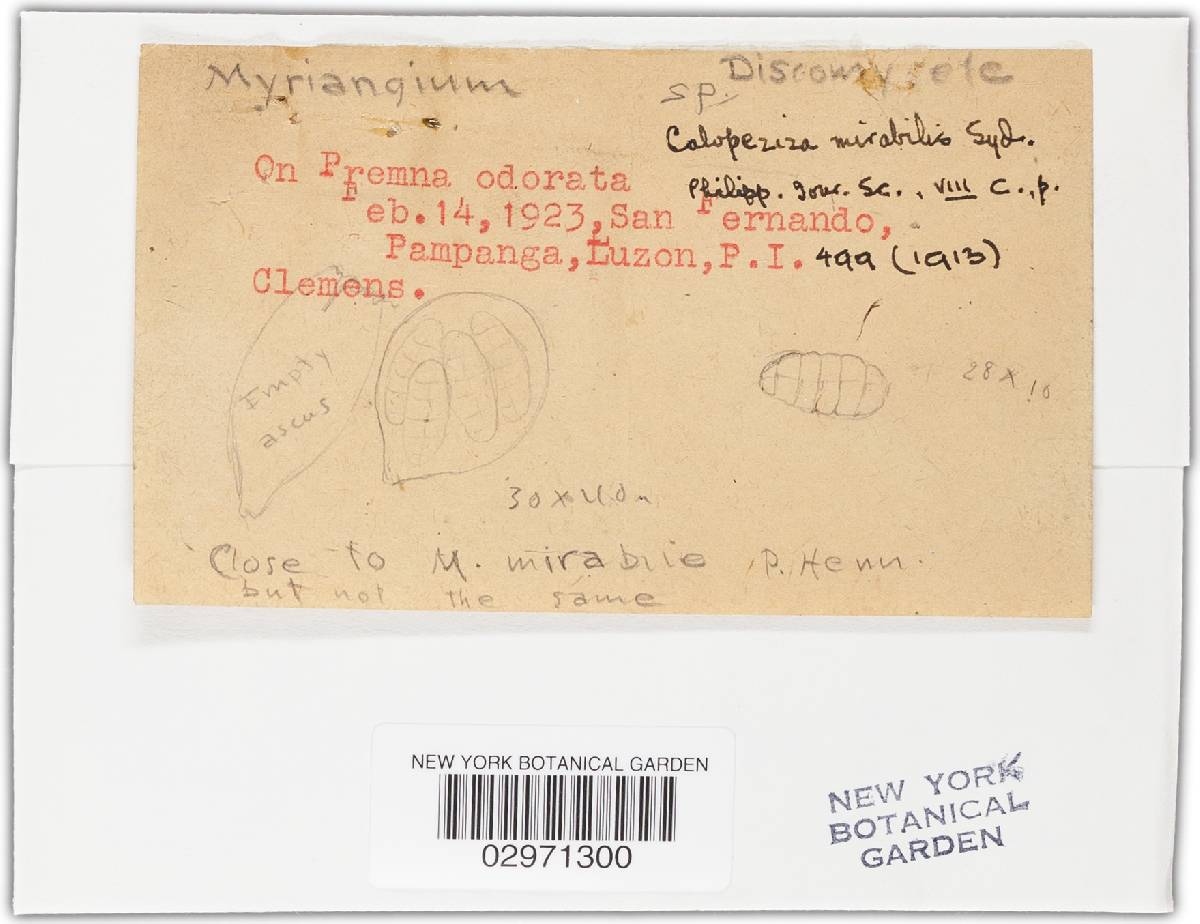 Myriangium
Discomycete
sp.
Calopeziza mirabilis Syd.
Philipp. Jour. Sc., VIII C., p.
499 (1913)
On Premna odorata
Feb.14,1923,San Fernando,
Pampanga,Luzon,P.I.
Clemens.
Empty
ascus
28 x 10
30 x 40 u
Close to M. mirabile P. Henn.
but not the same
NEW YORK BOTANICAL GARDEN
02971300
NEW YORK
BOTANICAL
GARDEN